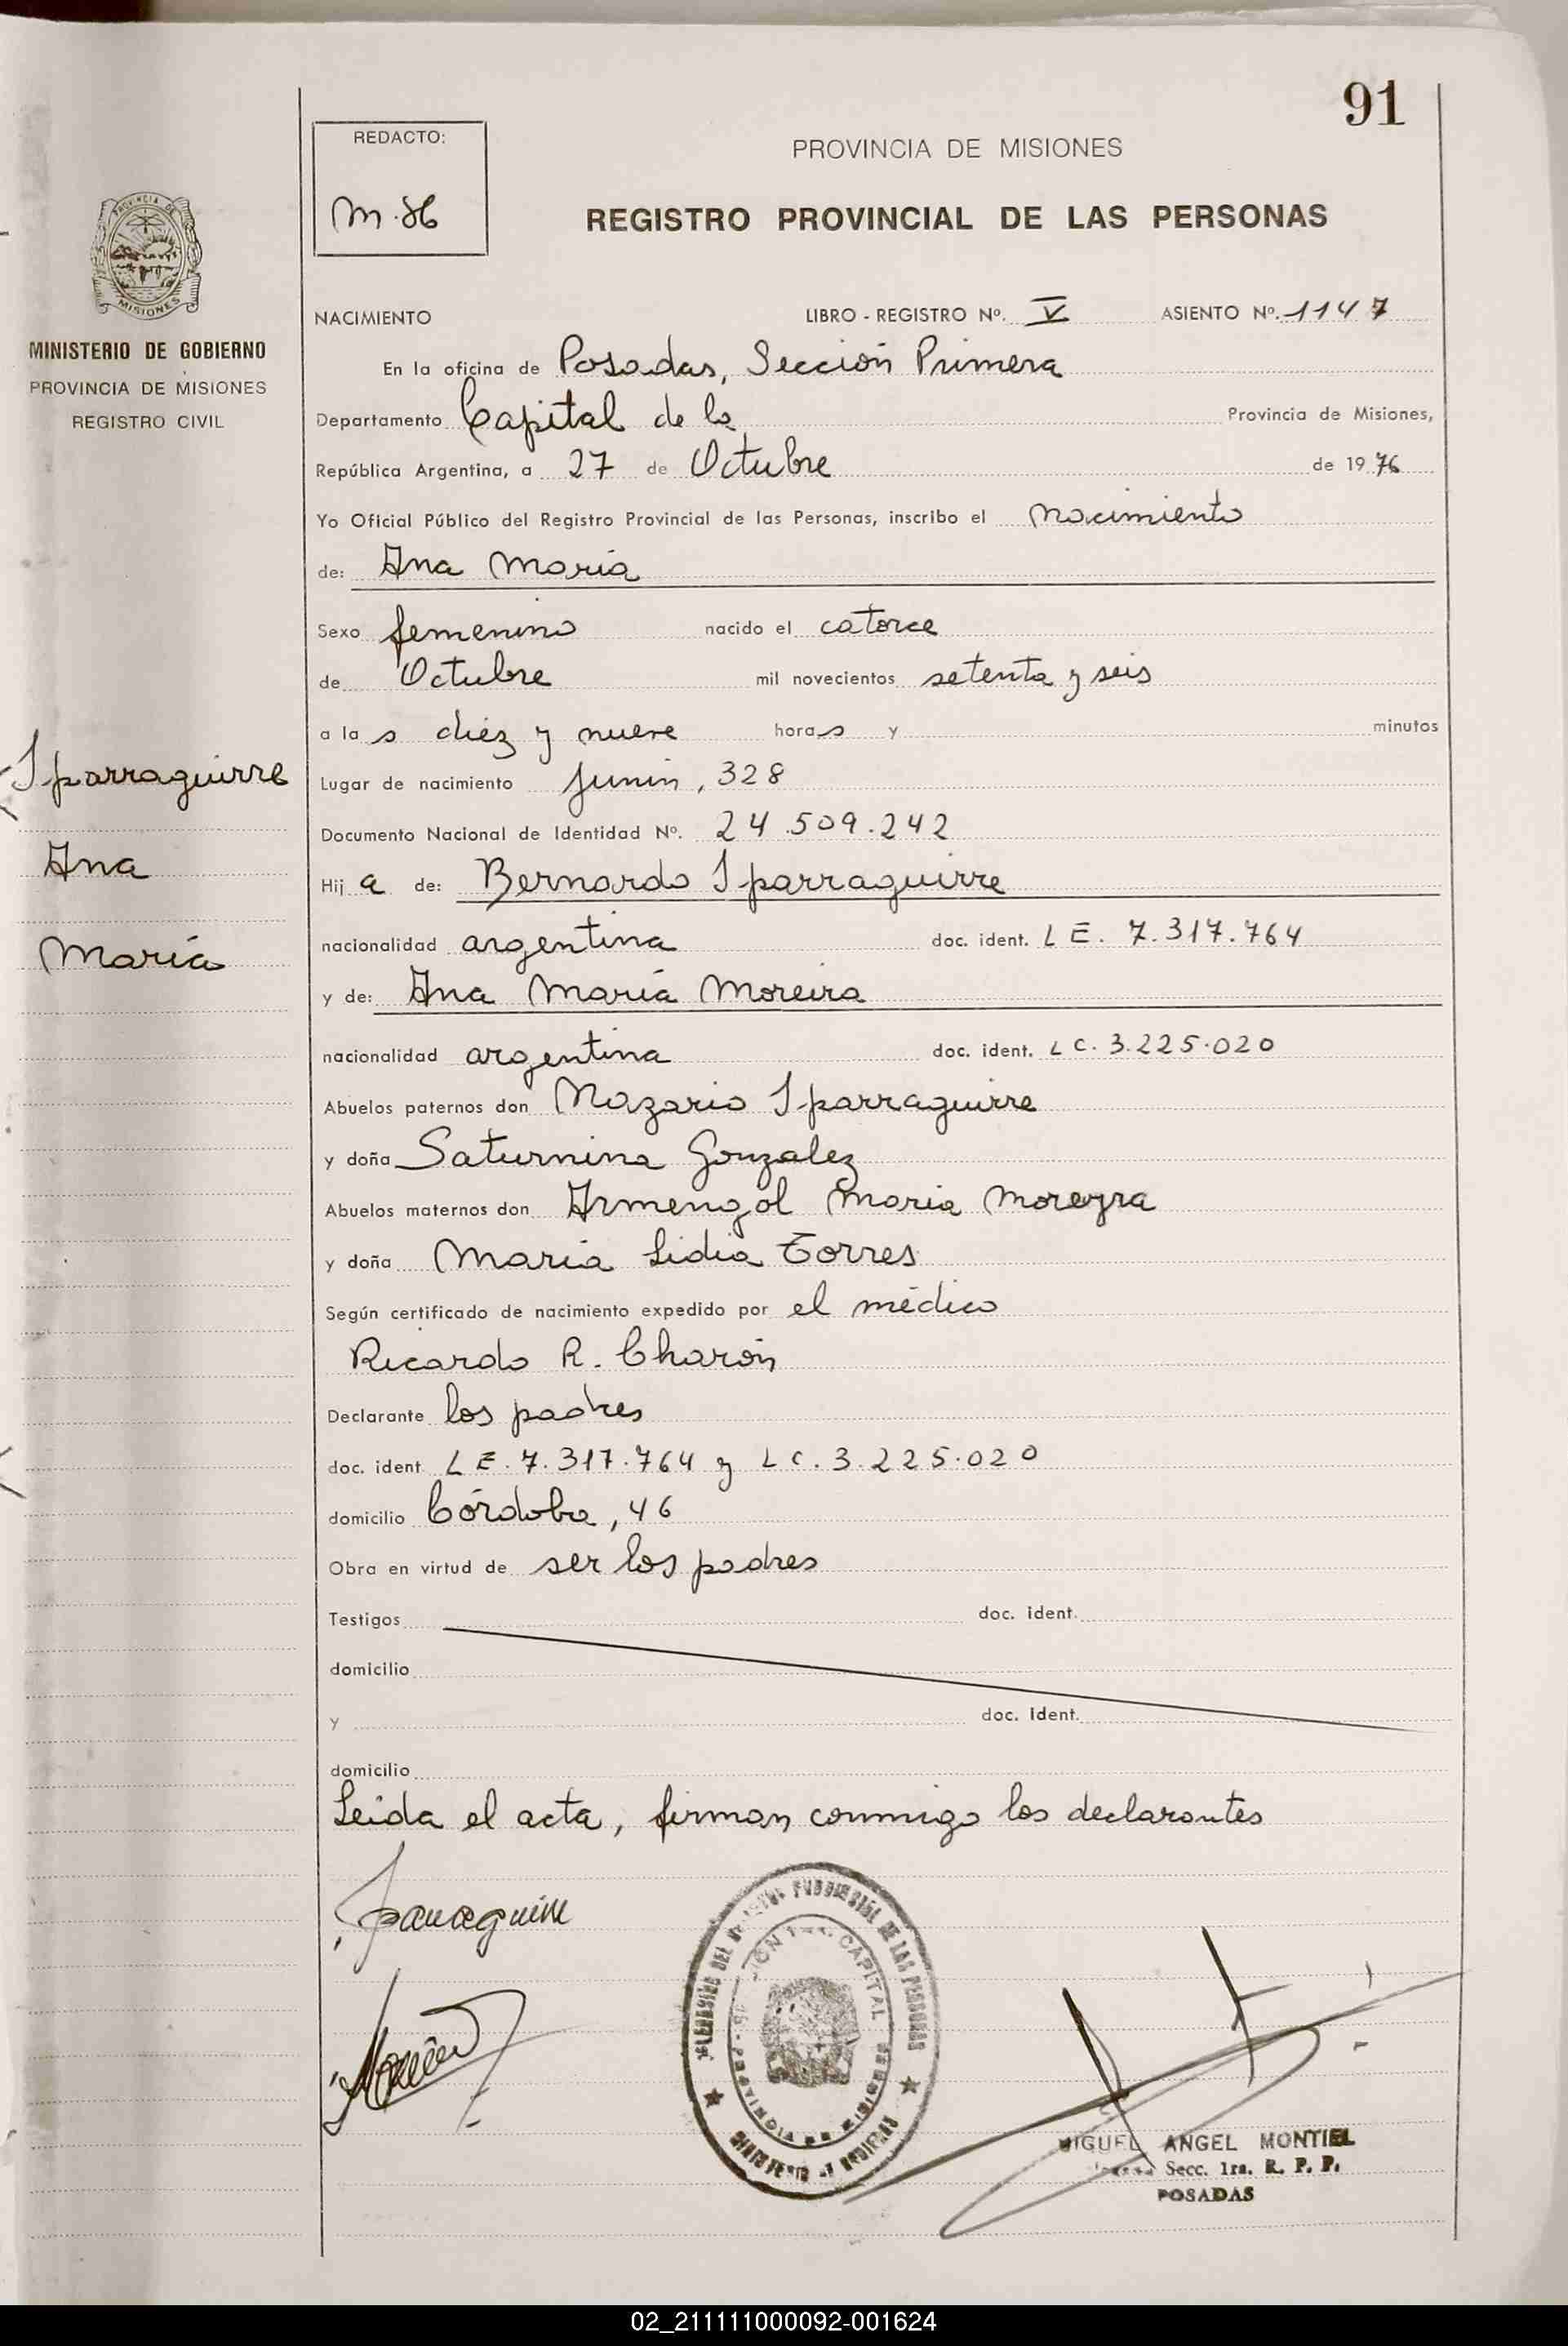 91
REDACTO:
PROVINCIA DE MISIONES
REGISTRO PROVINCIAL DE LAS PERSONAS
PROVINCIA DE
MISIONES
MINISTERIO DE GOBIERNO
PROVINCIA DE MISIONES
REGISTRO CIVIL
NACIMIENTO LIBRO - REGISTRO Nº. V ASIENTO Nº. 1147
En la oficina de Posadas, Sección Primera
Departamento Capital de la Provincia de Misiones,
República Argentina, a 27 de Octubre de 1976
Yo Oficial Público del Registro Provincial de las Personas, inscribo el nacimiento
de: Ana María
Sexo femenino nacido el catorce
de Octubre mil novecientos setenta y seis
a la s diez y nueve hora s y minutos
Iparraguirre
Ana
María
Lugar de nacimiento Junín, 328
Documento Nacional de Identidad Nº. 24.509.242
Hij a de: Bernardo Iparraguirre
nacionalidad argentina doc. ident. LE. 7.317.764
y de: Ana María Moreira
nacionalidad argentina doc. ident. LC. 3.225.020
Abuelos paternos don Nazario Iparraguirre
y doña Saturnina Gonzalez
Abuelos maternos don Armengol Maria Moreyra
y doña María Lidia Torres
Según certificado de nacimiento expedido por el médico
Ricardo R. Charón
Declarante los padres
doc. ident. LE. 7.317.764 y LC. 3.225.020
domicilio Córdoba, 46
Obra en virtud de ser los padres
Testigos doc. ident.
domicilio
y doc. ident.
domicilio
Leida el acta, firman conmigo los declarantes
Iparraguirre
DEL PROVINCIAL DE LAS PERSONAS
CAPITAL
PROVINCIA DE MISIONES
MIGUEL ANGEL MONTIEL
Secc. 1ra. R. P. P.
POSADAS
02_211111000092-001624